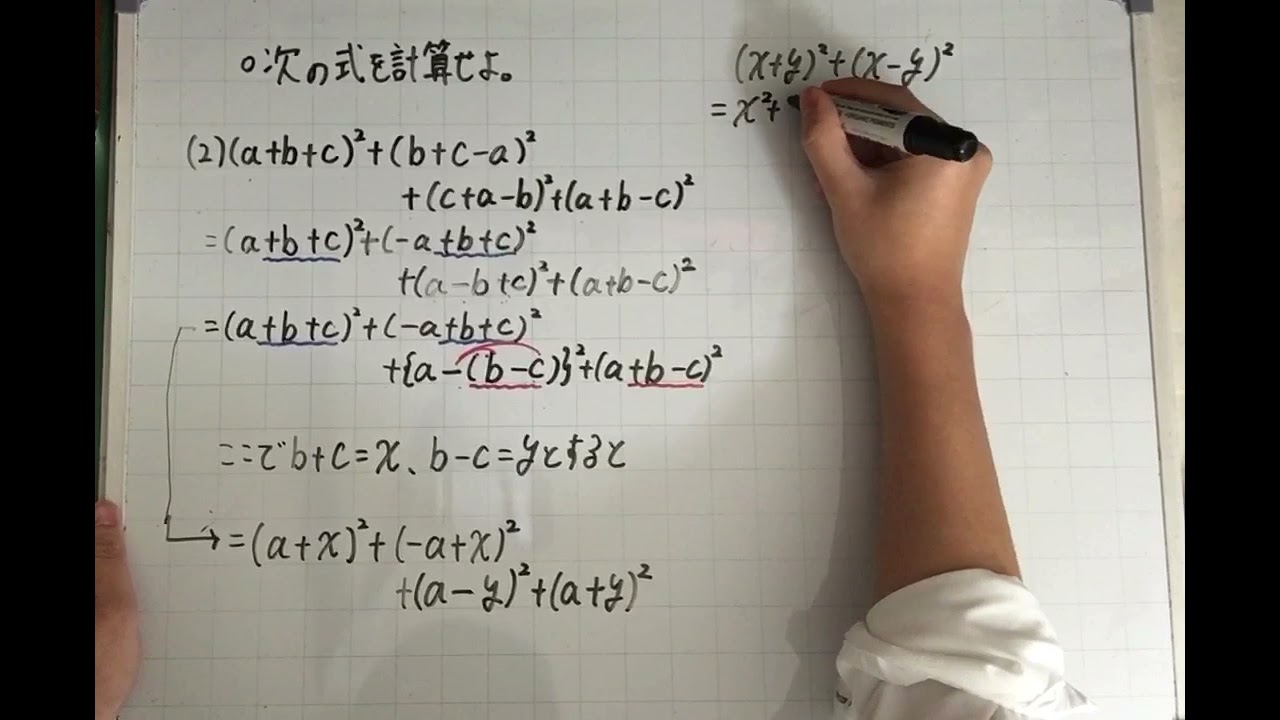 ○次の式を計算せよ。
(2)(a+b+c)²+(b+c-a)²
+(c+a-b)²+(a+b-c)²
=(a+b+c)²+(-a+b+c)²
+(a-b+c)²+(a+b-c)²
=(a+b+c)²+(-a+b+c)²
+{a-(b-c)}²+(a+b-c)²
ここでb+c=x、b-c=yとすると
=(a+x)²+(-a+x)²
+(a-y)²+(a+y)²
(x+y)²+(x-y)²
=x²+